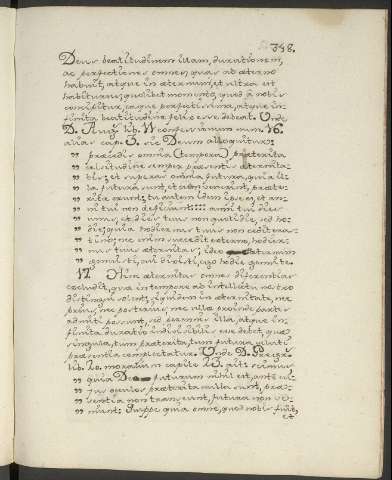 348.
Deus beatitudinem illam, durationem,
ac perfectiones omnes, quas ab æterno
habuit, atque in æternum, et ultra est
habiturus, quolibet momento, quod à nobis
concipitur eaque perfectissima, atque in-
finita beatitudine felix esse debeat. Unde
D. Aug. lib. 11 confessionum num. 16.
alias cap. 13. sic Deum alloquitur:
" præcedis omnia (tempora) præterita
" celsitudine semper præsentis æternita-
" tis; et superas omnia futura, quia il-
" la futura sunt, et cum venerint, præte-
" rita erunt; tu autem idem ipse es, et an-
" ni tui non deficiunt:::: anni tui dies
" unus, et dies tuus non quotidie, sed ho-
" die; quia hodiernus tuus non cedit cras-
" tino; nec enim succedit esterno, hodier-
" nus tuus æternitas; ideo coæternum
" genuisti, cui dixisti, ego hodie genui te.
17 Hinc æternitas omnes differentias
excludit, quæ in tempore ab intellectu nostro
distingui solent; siquidem in æternitate, nec
prius, nec posterius, nec ulla proinde partes
admitti possunt, sed perennis illa, atque in-
finita duratio indivisibilis esse debet, quæ
singula, tum præterita, tum futura veluti
præsentia complectatur. Unde D. Gregor.
lib. 20. moralium capite 23. ait: scimus
" quia Deo futurum nihil est, ante cu-
" jus oculos præterita nulla sunt, præ-
" sentia non transeunt, futura non ve-
" niunt: Quippe quia omne, quod nobis fuit,
et